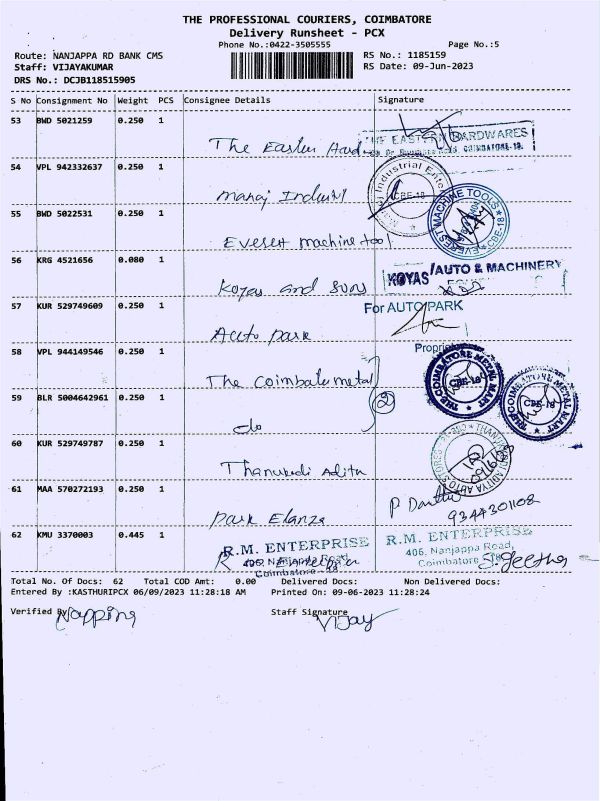 THE PROFESSIONAL COURIERS, COIMBATORE
Delivery Runsheet - PCX
Phone No.:0422-3505555 Page No.:5
Route: NANJAPPA RD BANK CMS RS No.: 1185159
Staff: VIJAYAKUMAR RS Date: 09-Jun-2023
DRS No.: DCJB118515905
S No Consignment No Weight PCS Consignee Details Signature
53 BWD 5021259 0.250 1
The Eastern Hard EASTERN HARDWARES
COIMBATORE-18.
54 VPL 942332637 0.250 1
Manoj Industrial Industrial Ente CBE-18
55 BWD 5022531 0.250 1
Everest machine tool EVEREST MACHINE TOOLS CBE-18
56 KRG 4521656 0.080 1
Koyas and Suns KOYAS AUTO & MACHINERY
57 KUR 529749609 0.250 1 For AUTO PARK
Auto park
58 VPL 944149546 0.250 1 Propri
The Coimbatore metal THE COIMBATORE METAL MART CBE-18
59 BLR 5004642961 0.250 1
do 2 THE COIMBATORE METAL MART CBE-18
60 KUR 529749787 0.250 1
ADITYA AUTO STORES
61 MAA 570272193 0.250 1
Park Elanza 9344301108
62 KMU 3370003 0.445 1
R.M. ENTERPRISE R.M. ENTERPRISE
406, Nanjappa Road, 406, Nanjappa Road,
Coimbatore Coimbatore S. Geetha
Total No. Of Docs: 62 Total COD Amt: 0.00 Delivered Docs: Non Delivered Docs:
Entered By :KASTHURIPCX 06/09/2023 11:28:18 AM Printed On: 09-06-2023 11:28:24
Verified By Staff Signature
Vijay